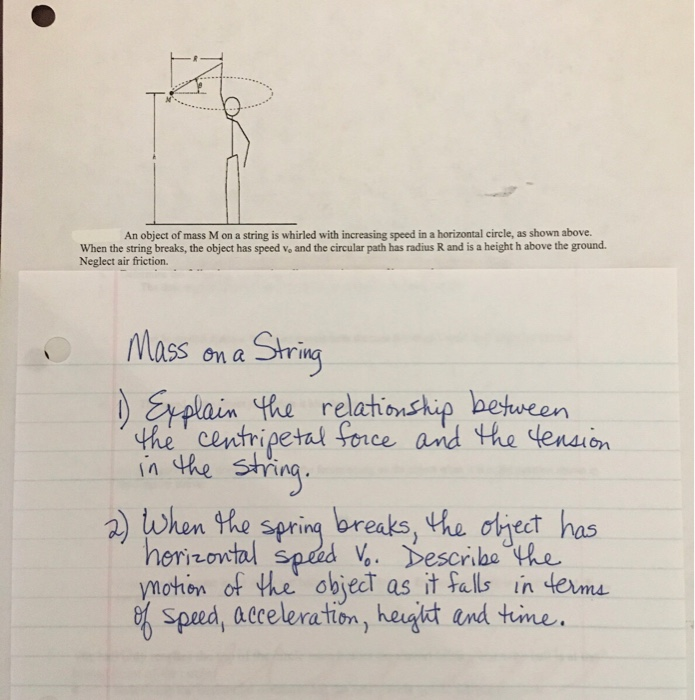 R
θ
M
h
An object of mass M on a string is whirled with increasing speed in a horizontal circle, as shown above.
When the string breaks, the object has speed vₒ and the circular path has radius R and is a height h above the ground.
Neglect air friction.
Mass on a String
1) Explain the relationship between
the centripetal force and the tension
in the string.
2) When the spring breaks, the object has
horizontal speed V₀. Describe the
motion of the object as it falls in terms
of speed, acceleration, height and time.